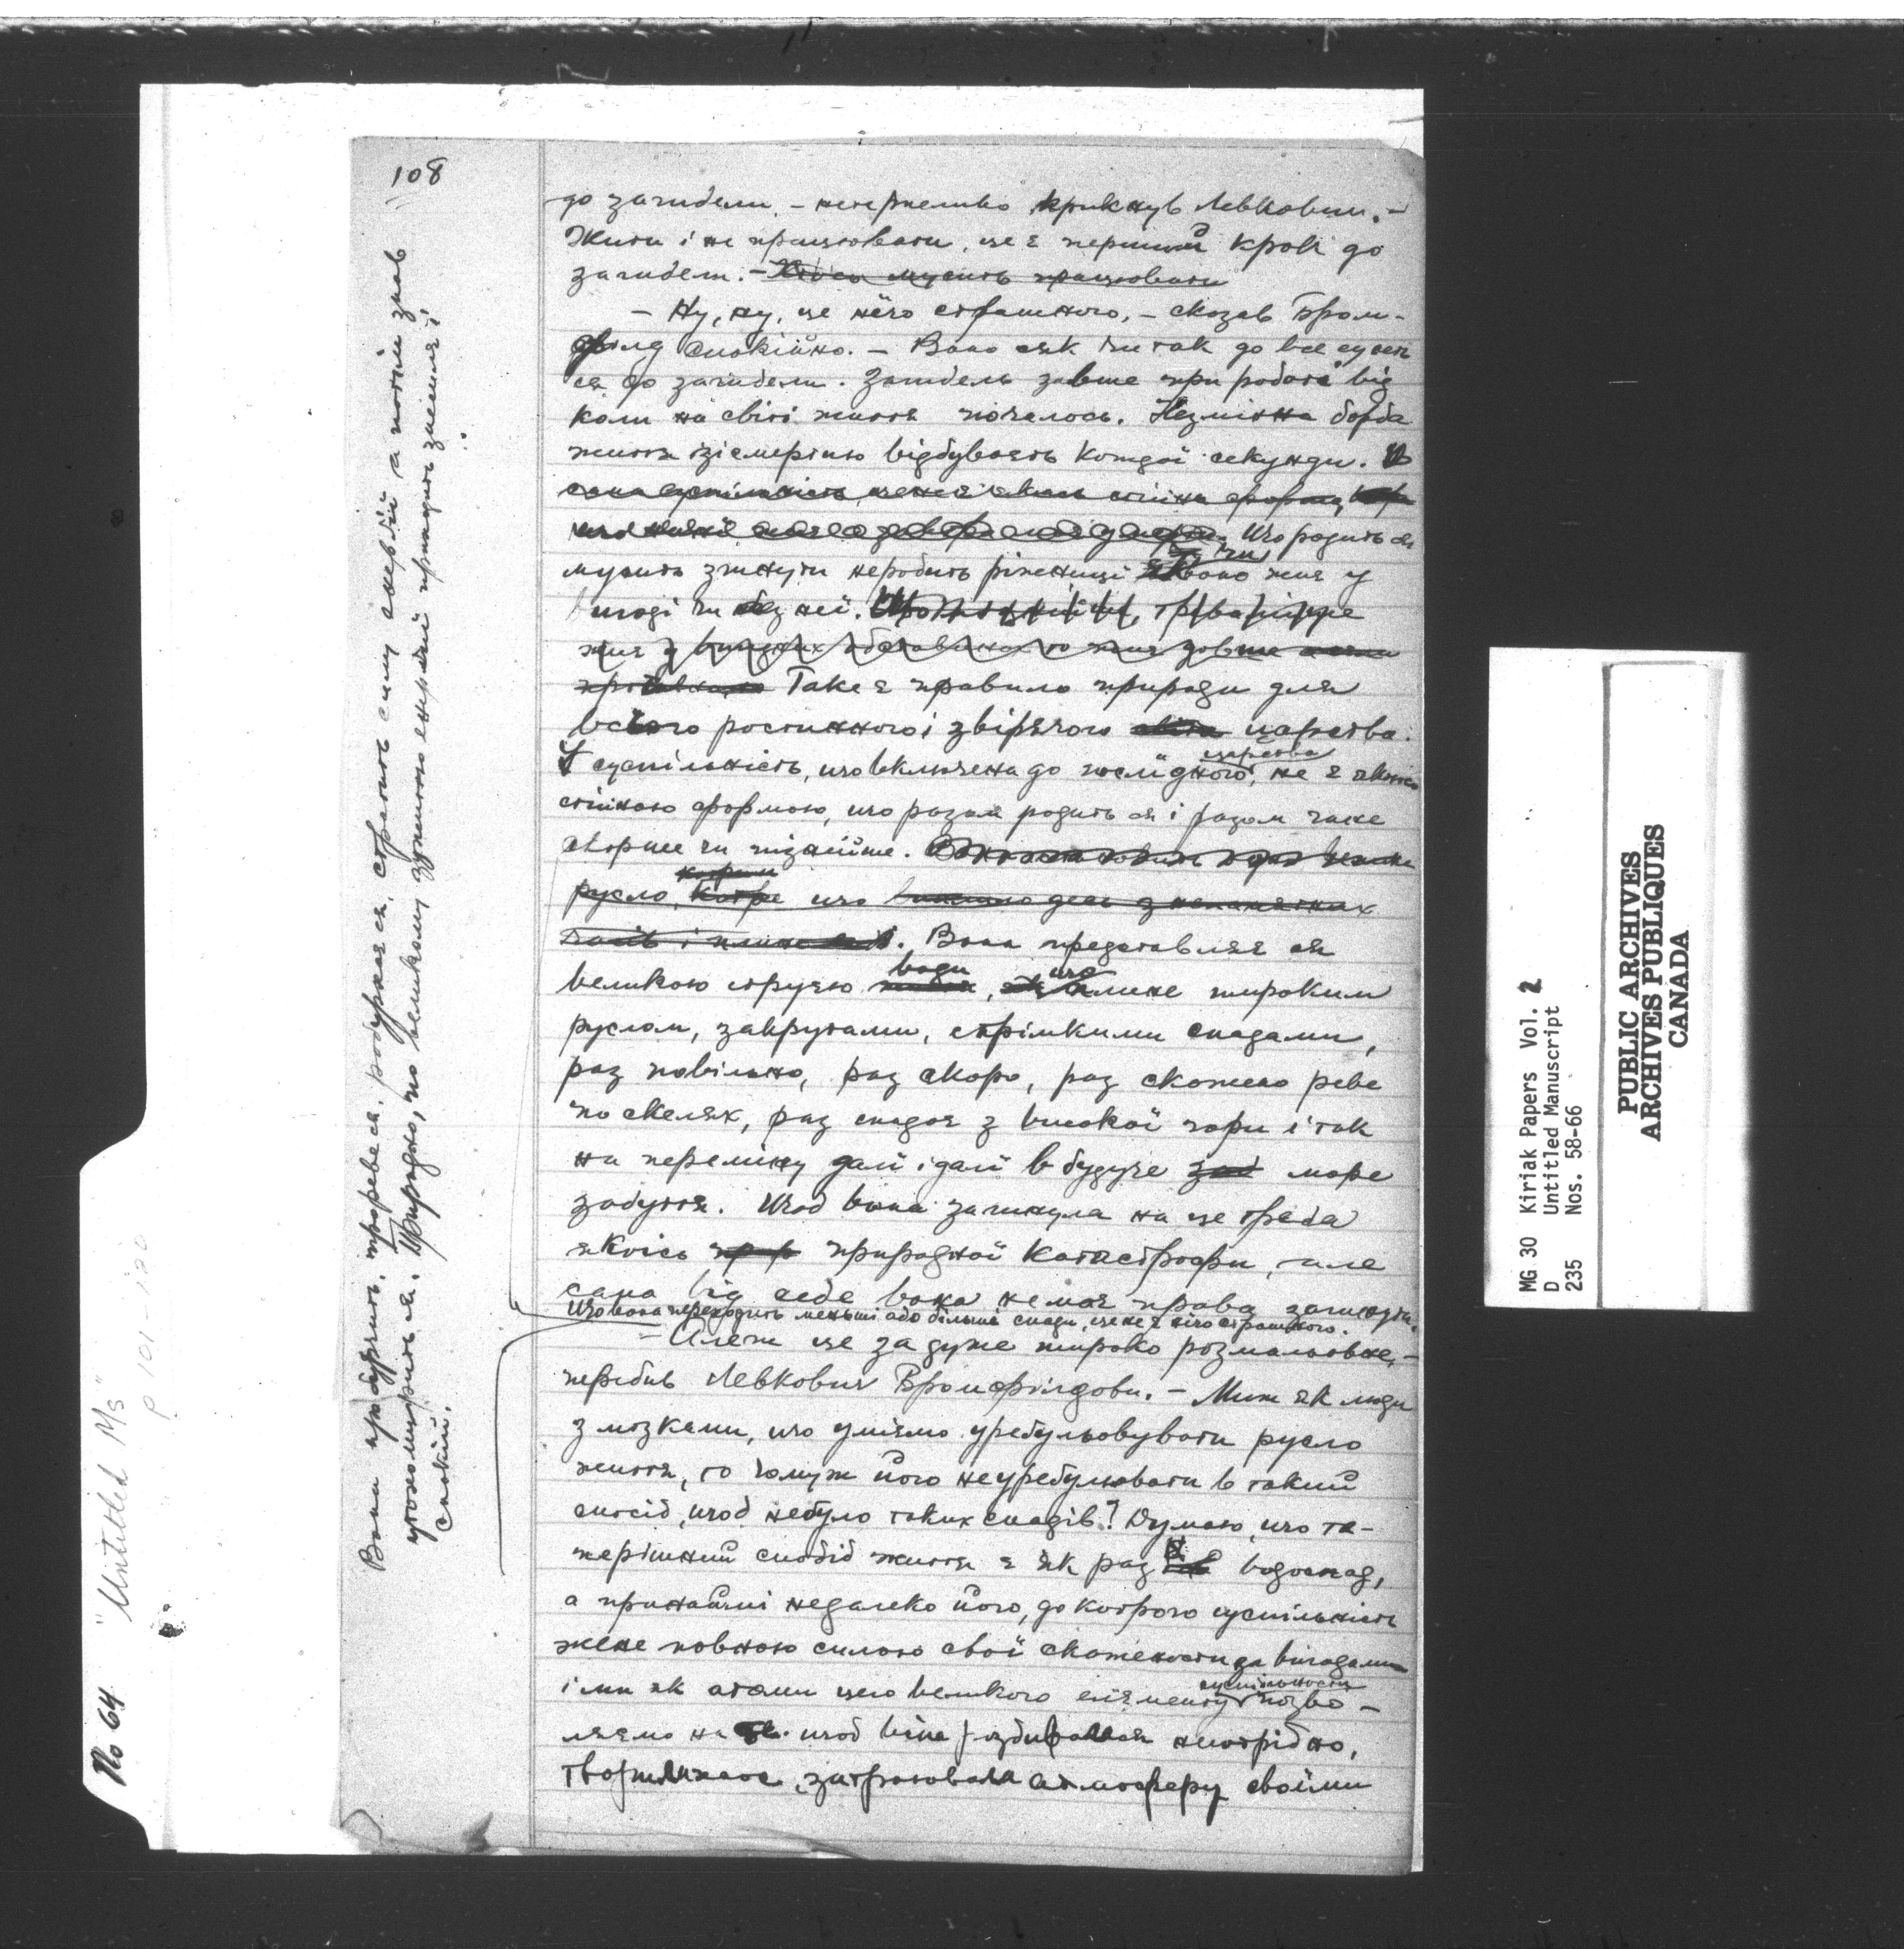 108
до загибели. – нетерпеливо крикнув Левкович. –
Жити і не працювати, це є перший крок до
загибели. – Хтось мусить працювати
– Ну, ну, це нічо страшного, – сказав Бром-
філд спокійно. – Воно сяк чи так до все суне
ся до загибели. Загибель завше при роботі від
коли на світі життя почалось. Незмінна борба
життя зі смертю відбуваєть кождої секунди.
Що родить ся
мусить згинути неробить ріжниці чи воно жиє у
вигоді чи без неї.
жиє у
Таке є правило природи для
всього ростинного і звірячого світа царства.
царства
І суспільність, що включена до послідного, не є якоюсь
стійною формою, що разом родить ся і разом гине
скорше чи пізнійше.
котрим
русло, котре що
часів і плине. Вона представляє ся
води що
великою струєю, плине широким
руслом, закрутами, стрімкими спадами,
раз повільно, раз скоро, раз скажено реве
по скелях, раз спадає з високої гори і так
на переміну далі і далі в будуче море
забуття. Щоб вона загинула на це треба
якоїсь природної катастрофи, але
сама від себе вона немає права загинути.
Що вона переходить меньші або більші спади, це не є нічо страшного.
– Алеж це за дуже широко розмальоване, –
перебив Левкович Бромфілдови. – Миж як люди
з мозками, що уміємо урегульовувати русло
життя, то чомуж його неурегулювати в такий
спосіб, щоб небуло таких спадів? Думаю, що те-
перішний спосіб життя є як раз водоспад,
а принаймні недалеко його, до котрого суспільність
жене повною силою свої скажености за вигодами
суспільности
і ми як атоми цего великого елєменту позво-
ляємо на те. щоб вона роздиралася непотрібно,
творила хаос, затроювала атмосферу своїми
Вона пробурить, прореве ся, розбурхає ся, стратить силу енергії а потім знов
утихомирить ся. Природно, по великому зужиттю енергії приходить знемога і
спокій.
No 64 "Untitled Ms"
p 101-120
MG 30 Kiriak Papers Vol. 2
D Untitled Manuscript
235 Nos. 58-66
PUBLIC ARCHIVES
ARCHIVES PUBLIQUES
CANADA